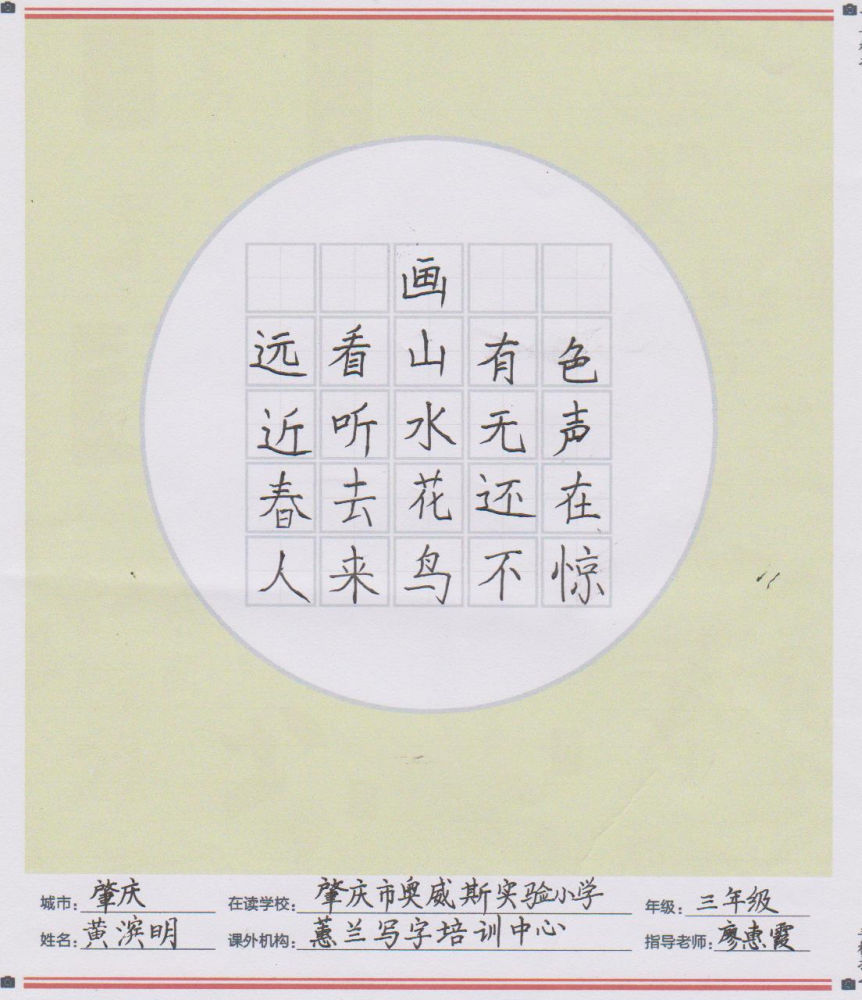 画
远看山有色
近听水无声
春去花还在
人来鸟不惊
城市: 肇庆 在读学校: 肇庆市奥威斯实验小学 年级: 三年级
姓名: 黄滨明 课外机构: 蕙兰写字培训中心 指导老师: 廖惠霞